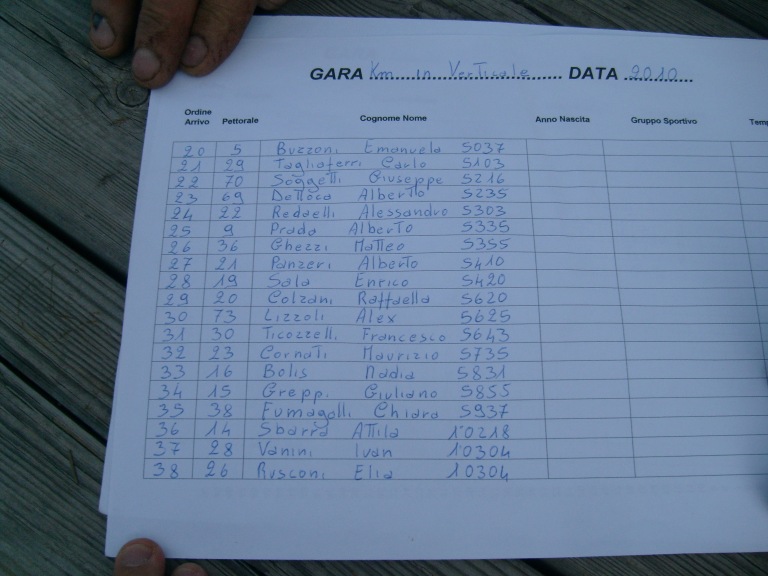 GARA Km in Verticale DATA 2010
Ordine Arrivo Pettorale Cognome Nome Anno Nascita Gruppo Sportivo Temp
20 5 Buzzoni Emanuela 5037
21 29 Tagliaferri Carlo 5103
22 70 Soggetti Giuseppe 5216
23 69 Dell'Oca Alberto 5235
24 22 Redaelli Alessandro 5303
25 9 Prada Alberto 5335
26 36 Ghezzi Matteo 5355
27 21 Panzeri Alberto 5410
28 19 Sala Enrico 5420
29 20 Colzani Raffaella 5620
30 73 Lizzoli Alex 5625
31 30 Ticozzelli Francesco 5643
32 23 Cornati Maurizio 5735
33 16 Bolis Nadia 5831
34 15 Greppi Giuliano 5855
35 38 Fumagalli Chiara 5937
36 14 Sbarra Attila 1'0218
37 28 Vanini Ivan 1'0304
38 26 Rusconi Elia 10304